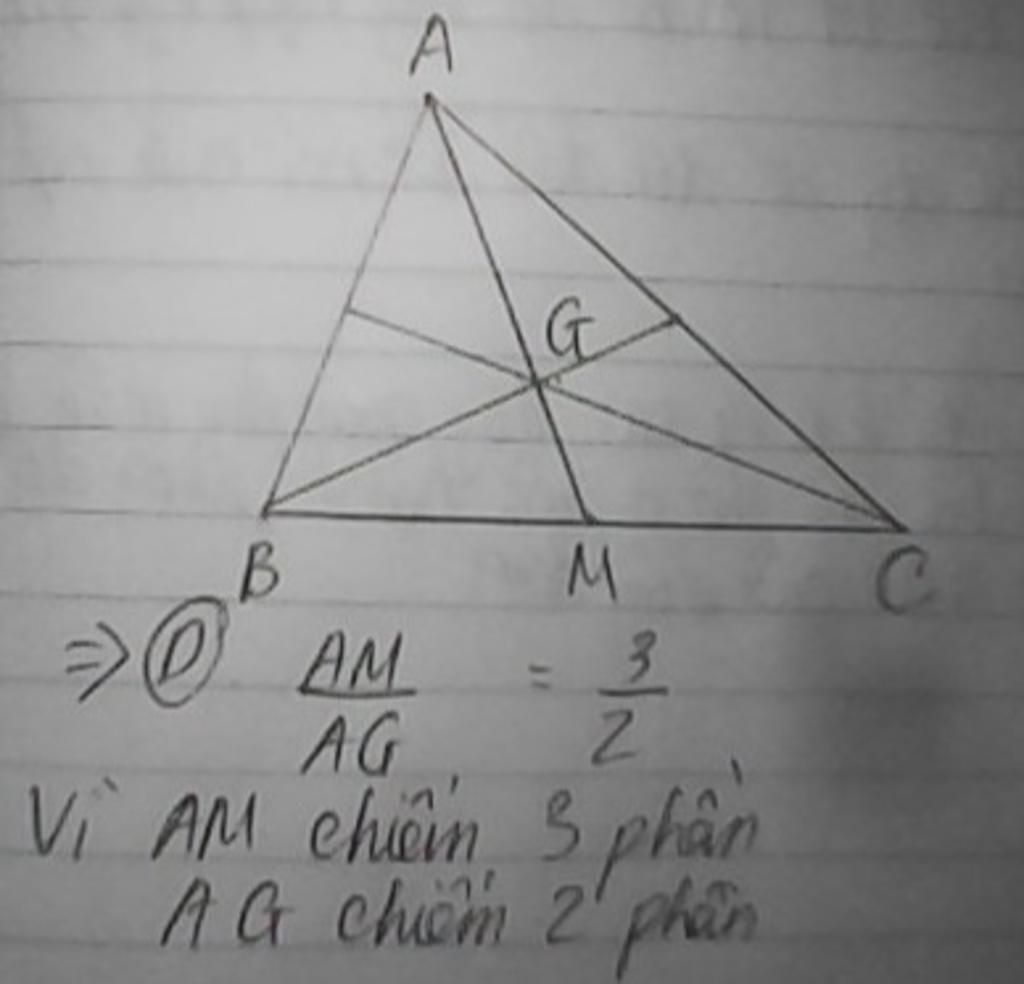 A
G
B M C
=> D AM/AG = 3/2
Vì AM chiếm 3 phần
AG chiếm 2 phần